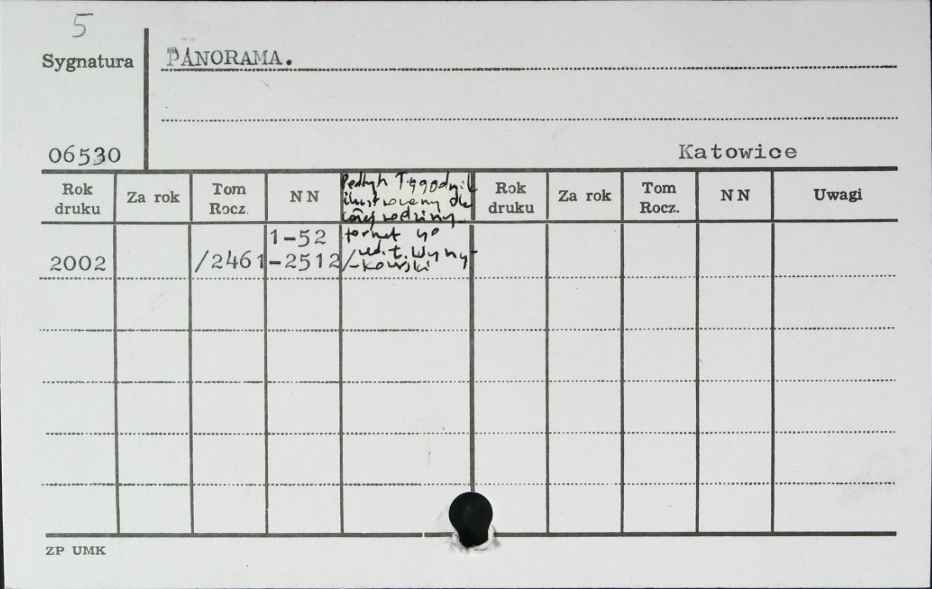 5
Sygnatura
PANORAMA.
06530
Katowice
Rok druku
Za rok
Tom Rocz.
N N
Podtyt. Tygodnik
ilustrowany dla
całej rodziny
format 40
red. t. Wyny-
-kowski
Rok druku
Za rok
Tom Rocz.
N N
Uwagi
1-52
2002 /2461-2512/
ZP UMK